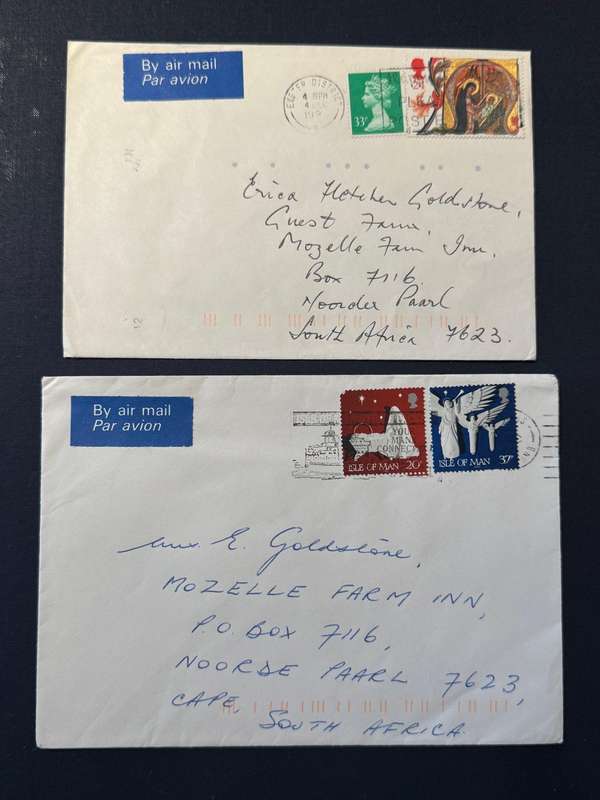 By air mail
Par avion
EXETER DISTRICT
33P
Erica Fletcher Goldstone,
Guest Farm,
Mozelle Farm Inn.
Box 7116.
Noorder Paarl
South Africa 7623.
By air mail
Par avion
YOU
MAN
CONNECT
ISLE OF MAN 20P
ISLE OF MAN 37P
E. Goldstone,
MOZELLE FARM INN,
P.O. BOX 7116,
NOORDE PAARL 7623,
CAPE,
SOUTH AFRICA.